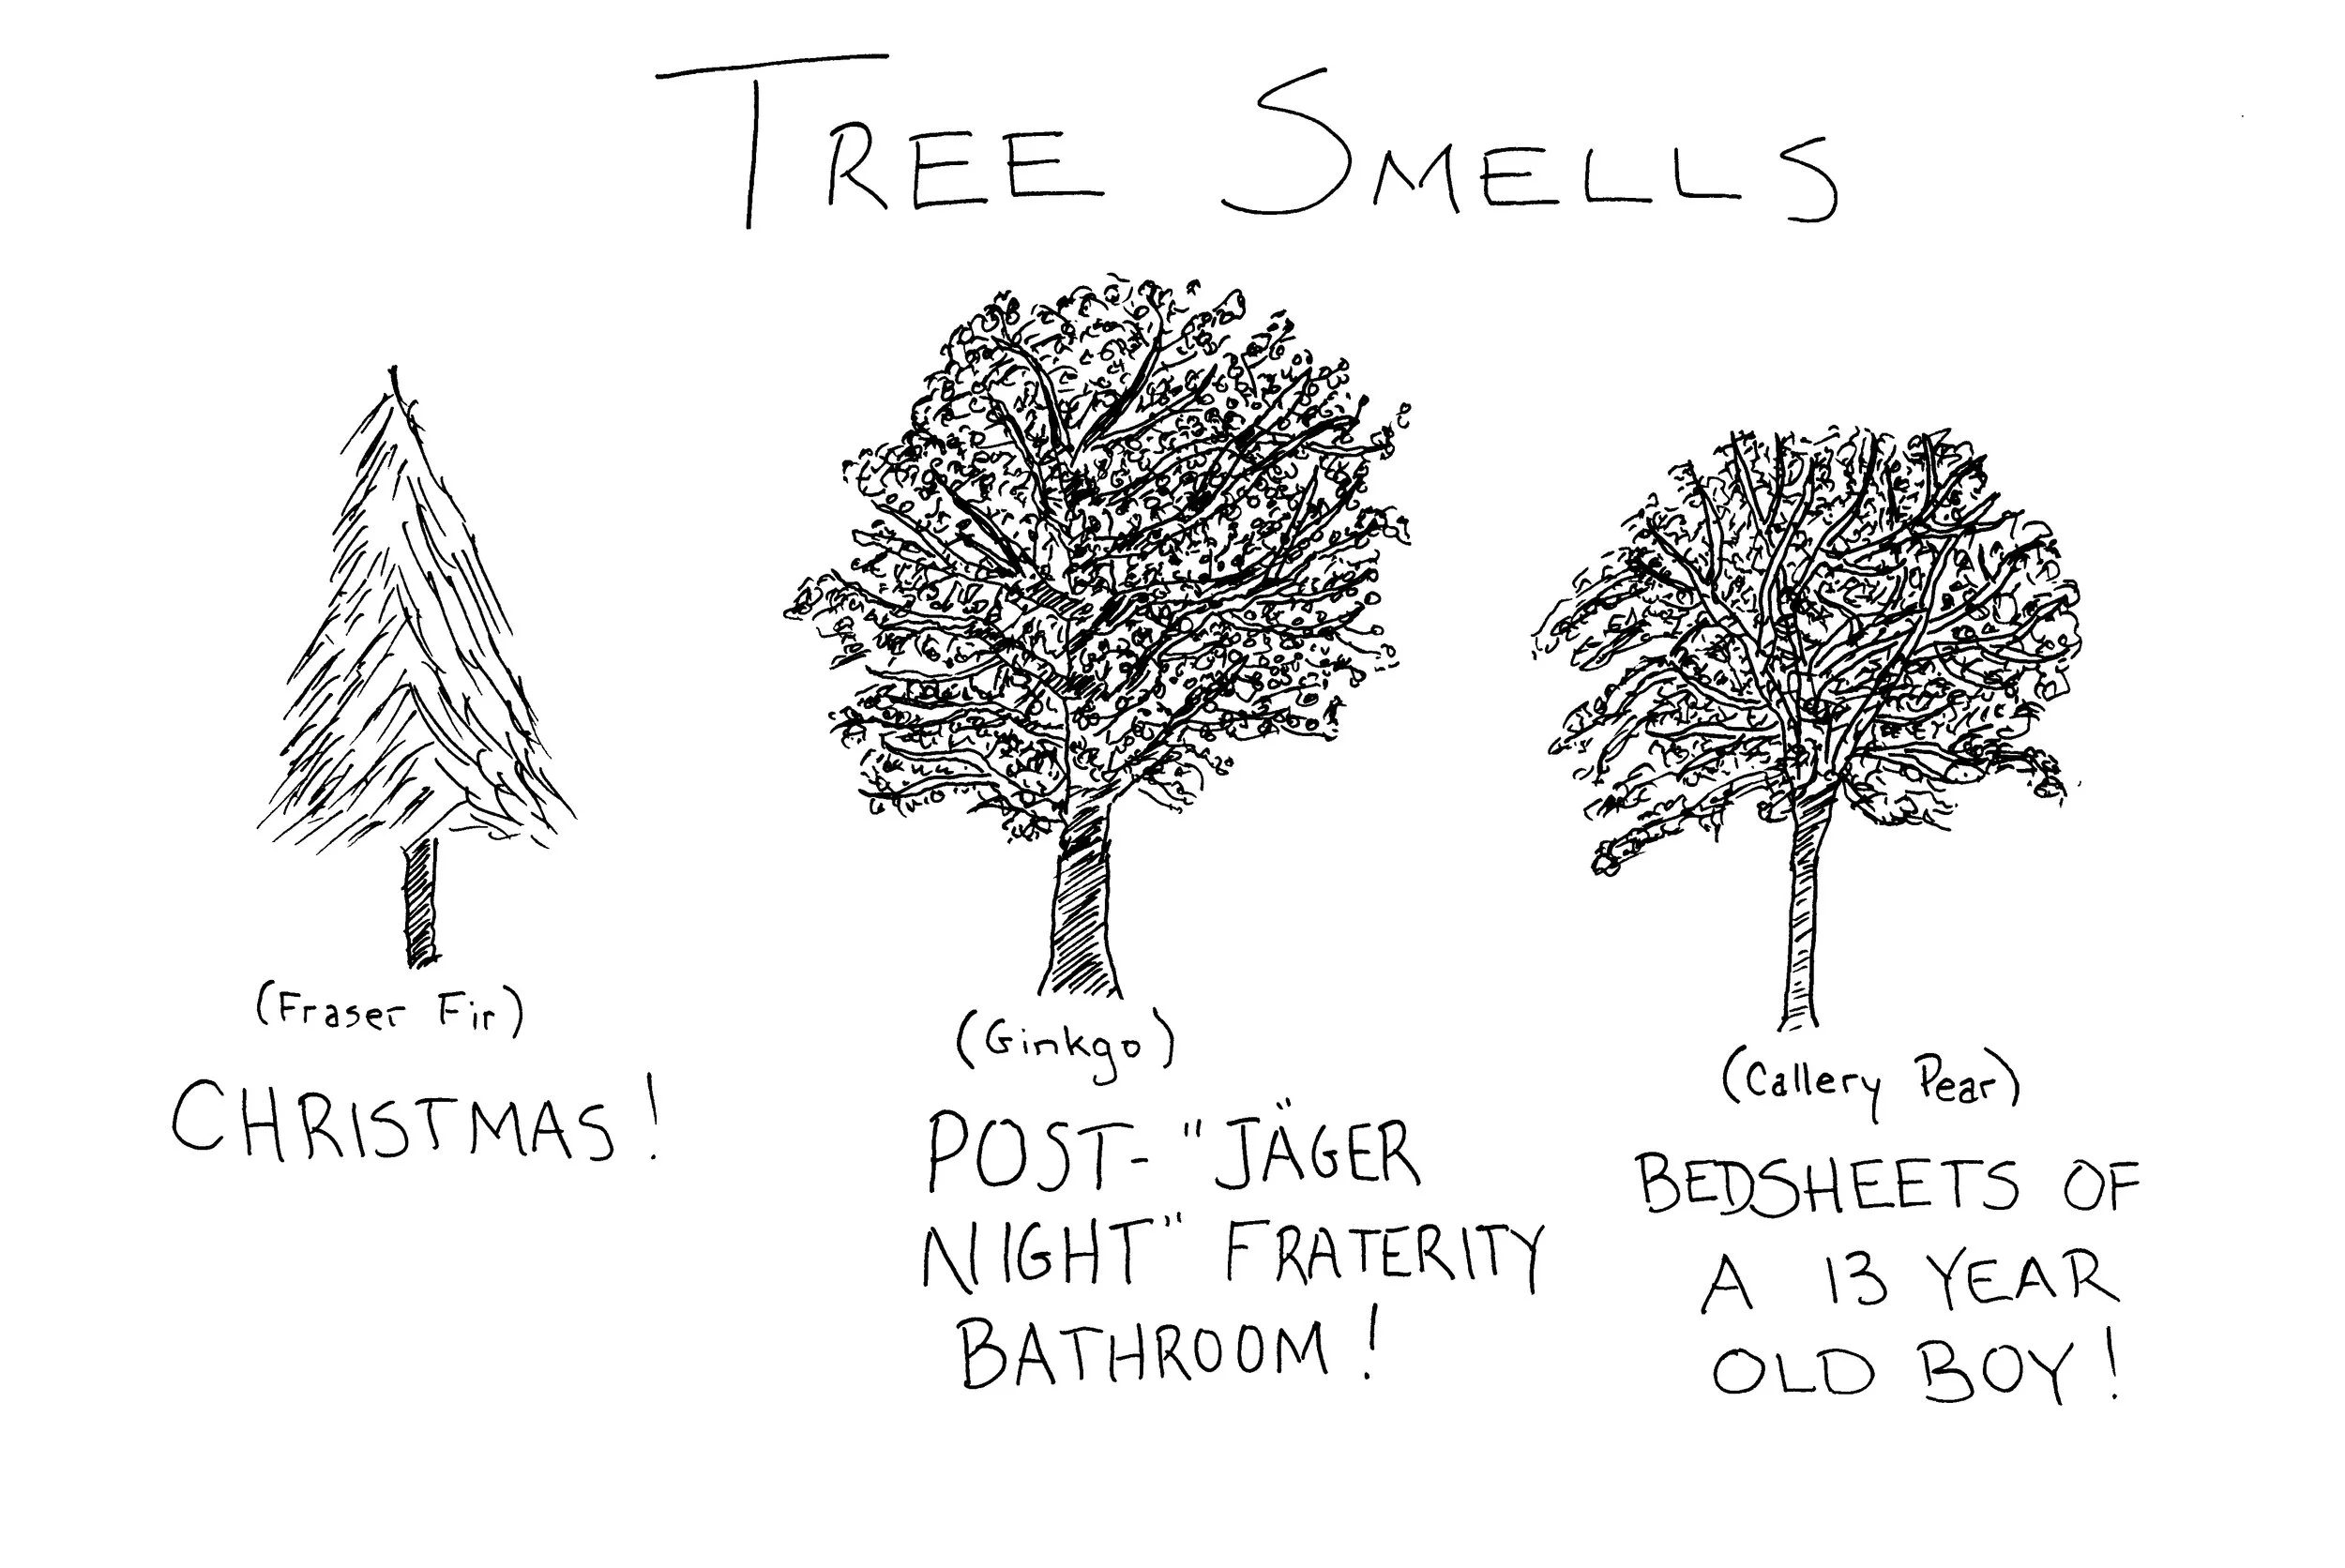 TREE SMELLS
(Fraser Fir)
CHRISTMAS!
(Ginkgo)
POST-"JÄGER
NIGHT" FRATERITY
BATHROOM!
(Callery Pear)
BEDSHEETS OF
A 13 YEAR
OLD BOY!